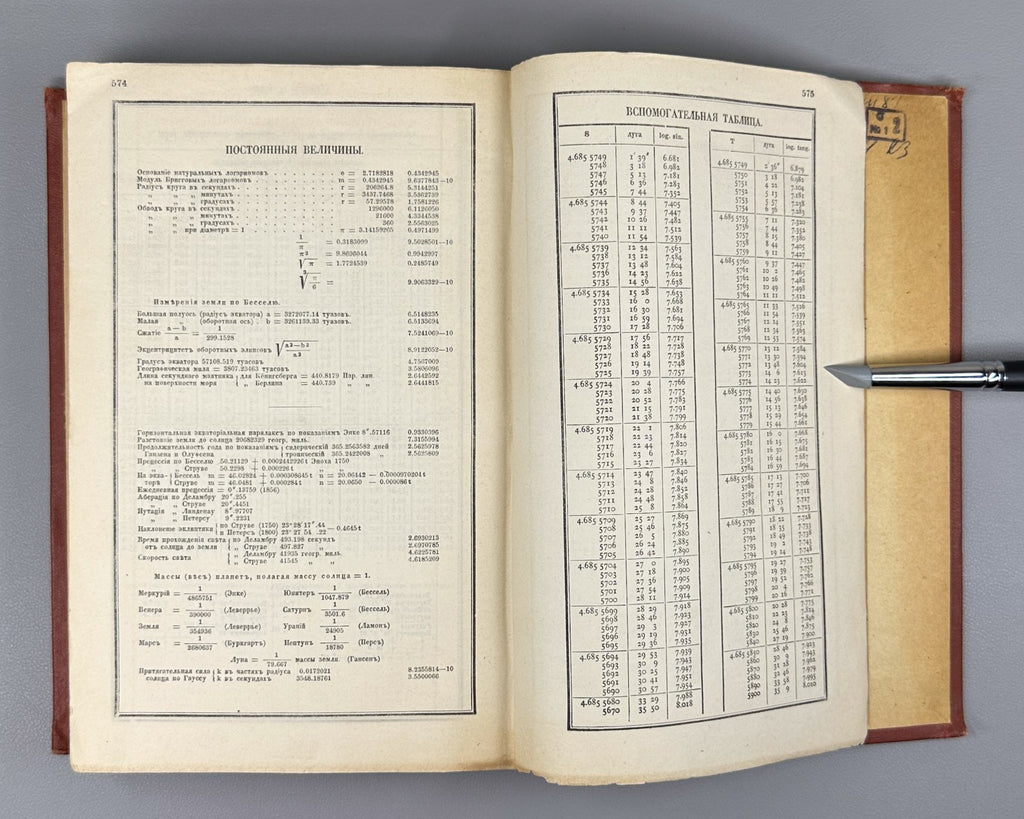 574
ПОСТОЯННЫЯ ВЕЛИЧИНЫ.
Основаніе натуральныхъ логариѳмовъ e = 2.7182818 0.4342945
Модуль Бригговыхъ логариѳмовъ m = 0.4342945 9.6377843—10
Радіусъ круга въ секундахъ r = 206264.8 5.3144251
„ „ „ минутахъ r = 3437.7468 3.5362739
„ „ „ градусахъ r = 57.29578 1.7581226
Обводъ круга въ секундахъ 1296000 6.1126050
„ „ „ минутахъ 21600 4.3344538
„ „ „ градусахъ 360 2.5563025
„ „ при діаметрѣ = 1 π = 3.14159265 0.4971499
1/π = 0.3183099 9.5028501—10
π² = 9.8696044 0.9942997
√π = 1.7724539 0.2485749
∛π/6 = 9.9063329—10
Измѣренія земли по Бесселю.
Большая полуось (радіусъ экватора) a = 3272077.14 туазовъ. 6.5148235
Малая „ (оборотная ось) . b = 3261139.33 туазовъ. 6.5133694
Сжатіе a—b/a = 1/299.1528 7.5241069—10
Эксцентрицитетъ оборотныхъ элипсовъ √a²—b²/a² 8.9122052—10
Градусъ экватора 57108.519 туазовъ. 4.7567009
Географическая миля = 3807.23463 туазовъ 3.5806096
Длина секундного маятника для Кёнигсберга = 440.8179 Пар. лин. 2.6442592
на поверхности моря „ Берлина = 440.739 „ „ 2.6441815
Горизонтальная экваторіальная паралаксъ по показаніямъ Энке 8″.57116 0.9330396
Разстояніе земли до солнца 20682329 геогр. миль. 7.3155994
Продолжительность года по показаніямъ сидерическій 365.2563582 дней 2.5625978
Ганзена и Олуфсена троническій 365.2422008 „ 2.5625809
Прецессія по Бесселю 50.21129 + 0.0002442926 t Эпоха 1750
„ „ Струве 50.2298 + 0.000226 t „ „
На эква- Бессель m = 46.02824 + 0.000308645 t n = 20.06442 — 0.0000970204 t
торѣ Струве m = 46.0481 + 0.000284 t n = 20.0650 — 0.000086 t
Ежедневная прецессія = 0″.13759 (1856)
Аберація по Деламбру 20″.255
„ „ Струве 20″.4451
Нутація „ Линдалю 8″.97707
„ „ Петерсу 9″.2231
Наклоненіе эклиптики по Струве (1750) 23° 28′ 17″.44 — 0.4645 t
и Петерсъ (1800) 23° 27′ 54 .22
Время прохожденія свѣта по Деламбру 493.198 секундъ 2.6930213
отъ солнца до земли „ Струве 497.827 „ 2.6970785
Скорость свѣта „ Деламбру 41935 геогр. миль. 4.6225781
„ Струве 41545 „ „ 4.6185209
Массы (вѣсъ) планетъ, полагая массу солнца = 1.
Меркурій = 1/4865751 (Энке) Юпитеръ = 1/1047.879 (Бессель)
Венера = 1/390000 (Леверрье) Сатурнъ = 1/3501.6 (Бессель)
Земля = 1/354936 (Леверрье) Ураній = 1/24905 (Ламонъ)
Марсъ = 1/2680637 (Буркгартъ) Нептунъ = 1/18780 (Перс)
Луна = 1/79.667 массы земли. (Гансенъ)
Притягательная сила k въ частяхъ радіуса 0.0172021 8.2355814—10
солнца по Гауссу k въ секундахъ 3548.18761 3.5500066
575
ВСПОМОГАТЕЛЬНАЯ ТАБЛИЦА.
S дуга log. sin.
4.685 5749 1′ 39″ 6.681
5748 3 18 6.982
5747 5 13 7.181
5746 6 36 7.283
5745 7 44 7.352
4.685 5744 8 44 7.405
5743 9 37 7.447
5742 10 26 7.482
5741 11 11 7.512
5740 11 54 7.539
4.685 5739 12 34 7.563
5738 13 12 7.584
5737 13 48 7.604
5736 14 23 7.622
5735 14 56 7.638
4.685 5734 15 28 7.653
5733 16 0 7.668
5732 16 30 7.681
5731 16 59 7.694
5730 17 28 7.706
4.685 5729 17 56 7.717
5728 18 22 7.728
5727 18 48 7.738
5726 19 14 7.748
5725 19 39 7.757
4.685 5724 20 4 7.766
5723 20 28 7.775
5722 20 52 7.783
5721 21 15 7.791
5720 21 38 7.799
4.685 5719 22 1 7.806
5718 22 23 7.814
5717 22 44 7.820
5716 23 6 7.827
5715 23 27 7.834
4.685 5714 23 47 7.840
5713 24 8 7.846
5712 24 28 7.852
5711 24 48 7.858
5710 25 8 7.864
4.685 5709 25 27 7.869
5708 25 46 7.875
5707 26 5 7.880
5706 26 24 7.885
5705 26 42 7.890
4.685 5704 27 0 7.895
5703 27 18 7.900
5702 27 36 7.905
5701 27 54 7.909
5700 28 11 7.914
4.685 5699 28 29 7.918
5698 28 46 7.923
5697 29 3 7.927
5696 29 19 7.931
5695 29 36 7.935
4.685 5694 29 53 7.939
5693 30 9 7.943
5692 30 25 7.947
5691 30 41 7.951
5690 30 57 7.954
4.685 5680 33 29 7.988
5670 35 50 8.018
T дуга log. tang.
4.685 5749 2′ 36″ 6.879
5750 3 18 6.982
5751 4 22 7.104
5752 5 13 7.181
5753 5 57 7.238
5754 6 36 7.283
4.685 5755 7 11 7.320
5756 7 44 7.352
5757 8 15 7.380
5758 8 44 7.405
5759 9 11 7.427
4.685 5760 9 37 7.447
5761 10 2 7.465
5762 10 26 7.482
5763 10 49 7.498
5764 11 11 7.512
4.685 5765 11 33 7.526
5766 11 54 7.539
5767 12 14 7.551
5768 12 34 7.563
5769 12 53 7.574
4.685 5770 13 12 7.584
5771 13 30 7.594
5772 13 48 7.604
5773 14 6 7.613
5774 14 23 7.622
4.685 5775 14 40 7.630
5776 14 56 7.638
5777 15 13 7.646
5778 15 29 7.654
5779 15 44 7.661
4.685 5780 16 0 7.668
5781 16 15 7.675
5782 16 30 7.681
5783 16 44 7.687
5784 16 59 7.694
4.685 5785 17 13 7.700
5786 17 27 7.706
5787 17 41 7.711
5788 17 55 7.717
5789 18 9 7.723
4.685 5790 18 22 7.728
5791 18 35 7.733
5792 18 49 7.738
5793 19 2 7.743
5794 19 14 7.748
4.685 5795 19 27 7.753
5796 19 39 7.757
5797 19 52 7.762
5798 20 4 7.766
5799 20 16 7.771
4.685 5800 20 28 7.775
5810 22 23 7.814
5820 24 8 7.846
5830 25 46 7.875
5840 27 19 7.900
4.685 5850 28 46 7.923
5860 30 9 7.943
5870 31 28 7.961
5880 32 46 7.979
5890 33 58 7.995
5900 35 9 8.010
№ 1 2